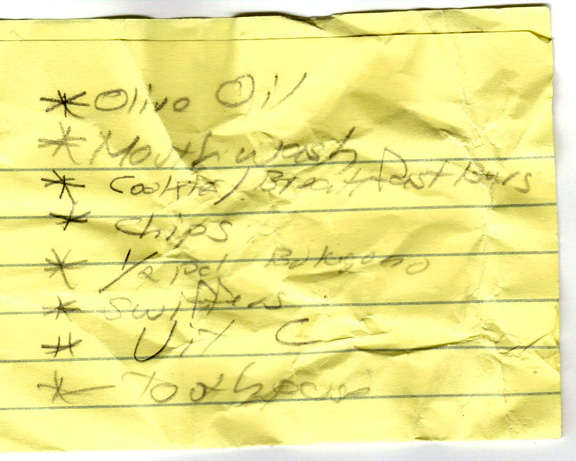 * Olive Oil
* Mouthwash
* Cookies / Breakfast bars
* Chips
* 1/2 pd Bologna
* Swiffers
* Vit C
* Toothpaste